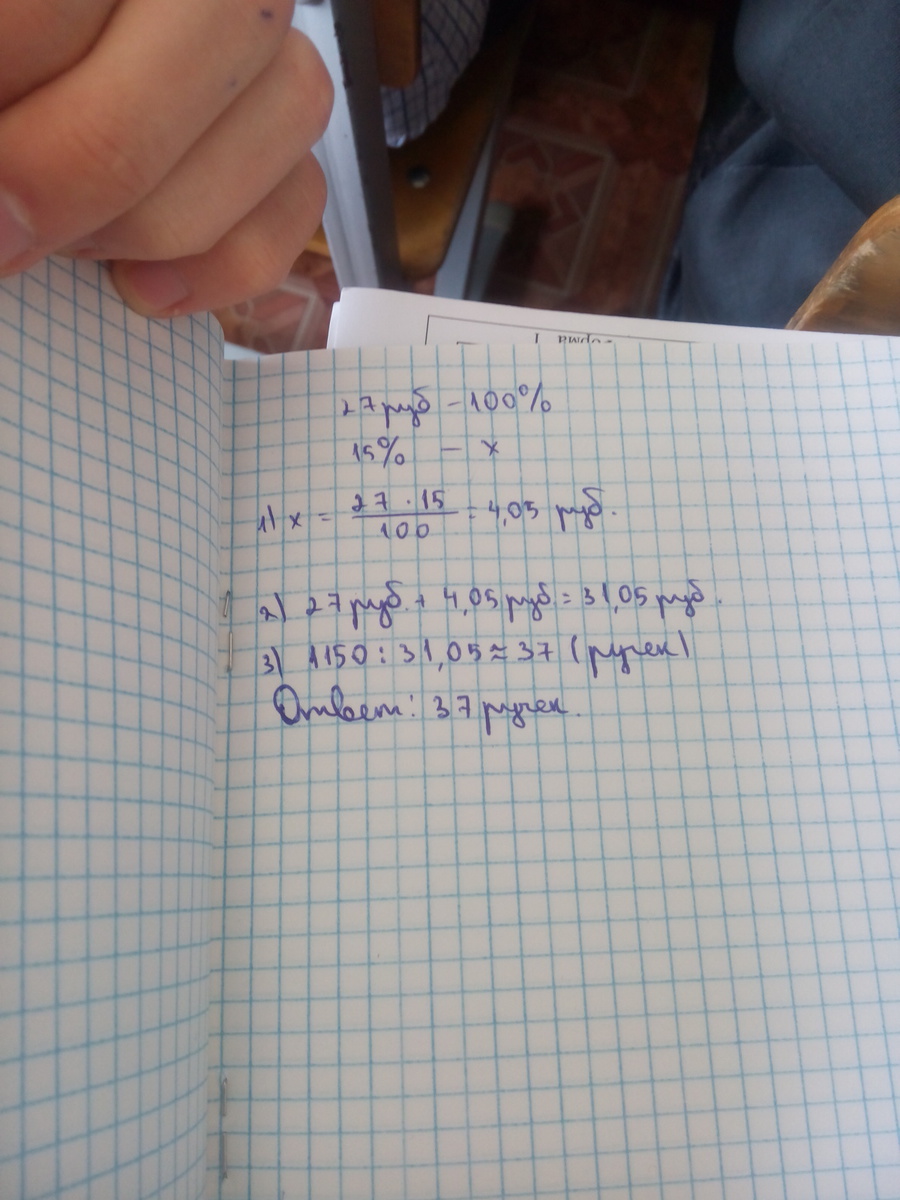 27 руб – 100%
15% – x
1) x = 27 · 15 / 100 = 4,05 руб.
2) 27 руб. + 4,05 руб = 31,05 руб.
3) 1150 : 31,05 ≈ 37 (ручек)
Ответ: 37 ручек.